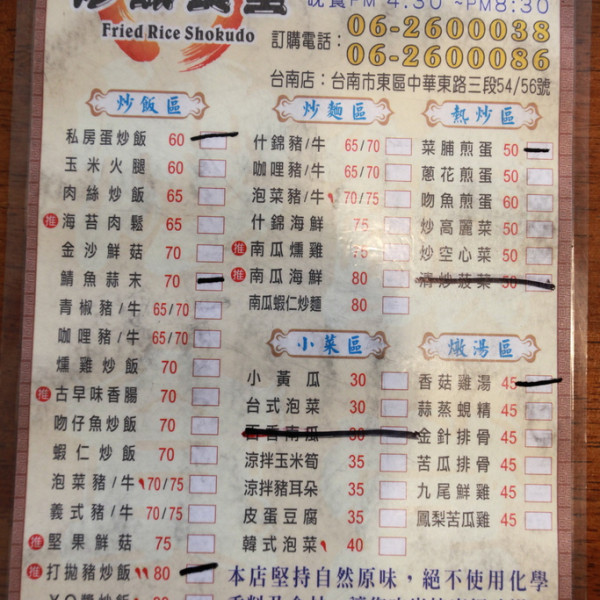 Fried Rice Shokudo
晚餐PM 4:30 ~PM8:30
訂購電話：
06-2600038
06-2600086
台南店：台南市東區中華東路三段54/56號
炒飯區
私房蛋炒飯 60
玉米火腿 60
肉絲炒飯 65
推 海苔肉鬆 65
金沙鮮菇 70
鯖魚蒜末 70
青椒豬/牛 65/70
咖哩豬/牛 65/70
燻雞炒飯 70
推 古早味香腸 70
吻仔魚炒飯 70
蝦仁炒飯 70
泡菜豬/牛 70/75
義式豬/牛 70/75
推 堅果鮮菇 75
推 打拋豬炒飯 80
炒麵區
什錦豬/牛 65/70
咖哩豬/牛 65/70
泡菜豬/牛 70/75
什錦海鮮 75
推 南瓜燻雞 75
推 南瓜海鮮 80
南瓜蝦仁炒麵 80
小菜區
小黃瓜 30
台式泡菜 30
百香南瓜 30
涼拌玉米筍 35
涼拌豬耳朵 35
皮蛋豆腐 35
韓式泡菜 40
熱炒區
菜脯煎蛋 50
蔥花煎蛋 50
吻魚煎蛋 60
炒高麗菜 50
炒空心菜 50
清炒菠菜 50
燉湯區
香菇雞湯 45
蒜蒸蜆精 45
金針排骨 45
苦瓜排骨 45
九尾鮮雞 45
鳳梨苦瓜雞 45
本店堅持自然原味，絕不使用化學